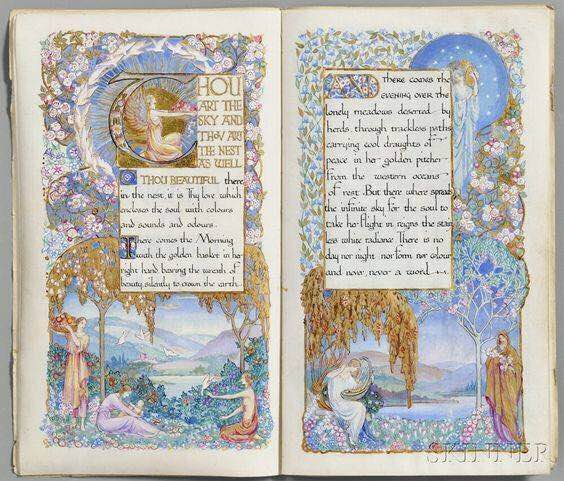 THOU
ART THE
SKY AND
THOU ART
THE NEST
AS WELL
O THOU BEAUTIFUL there
in the nest, it is Thy love which
encloses the soul with colours
and sounds and odours.
There comes the Morning
with the golden basket in her
right hand bearing the wreath of
beauty, silently to crown the earth.
AND there comes the
evening over the
lonely meadows deserted by
herds, through trackless paths
carrying cool draughts of
peace in her golden pitcher
from the western oceans
of rest. But there where spreads
the infinite sky for the soul to
take her flight in reigns the stain
less white radiance. There is no
day nor night, nor form nor colour
and never, never a word.
SKINNER